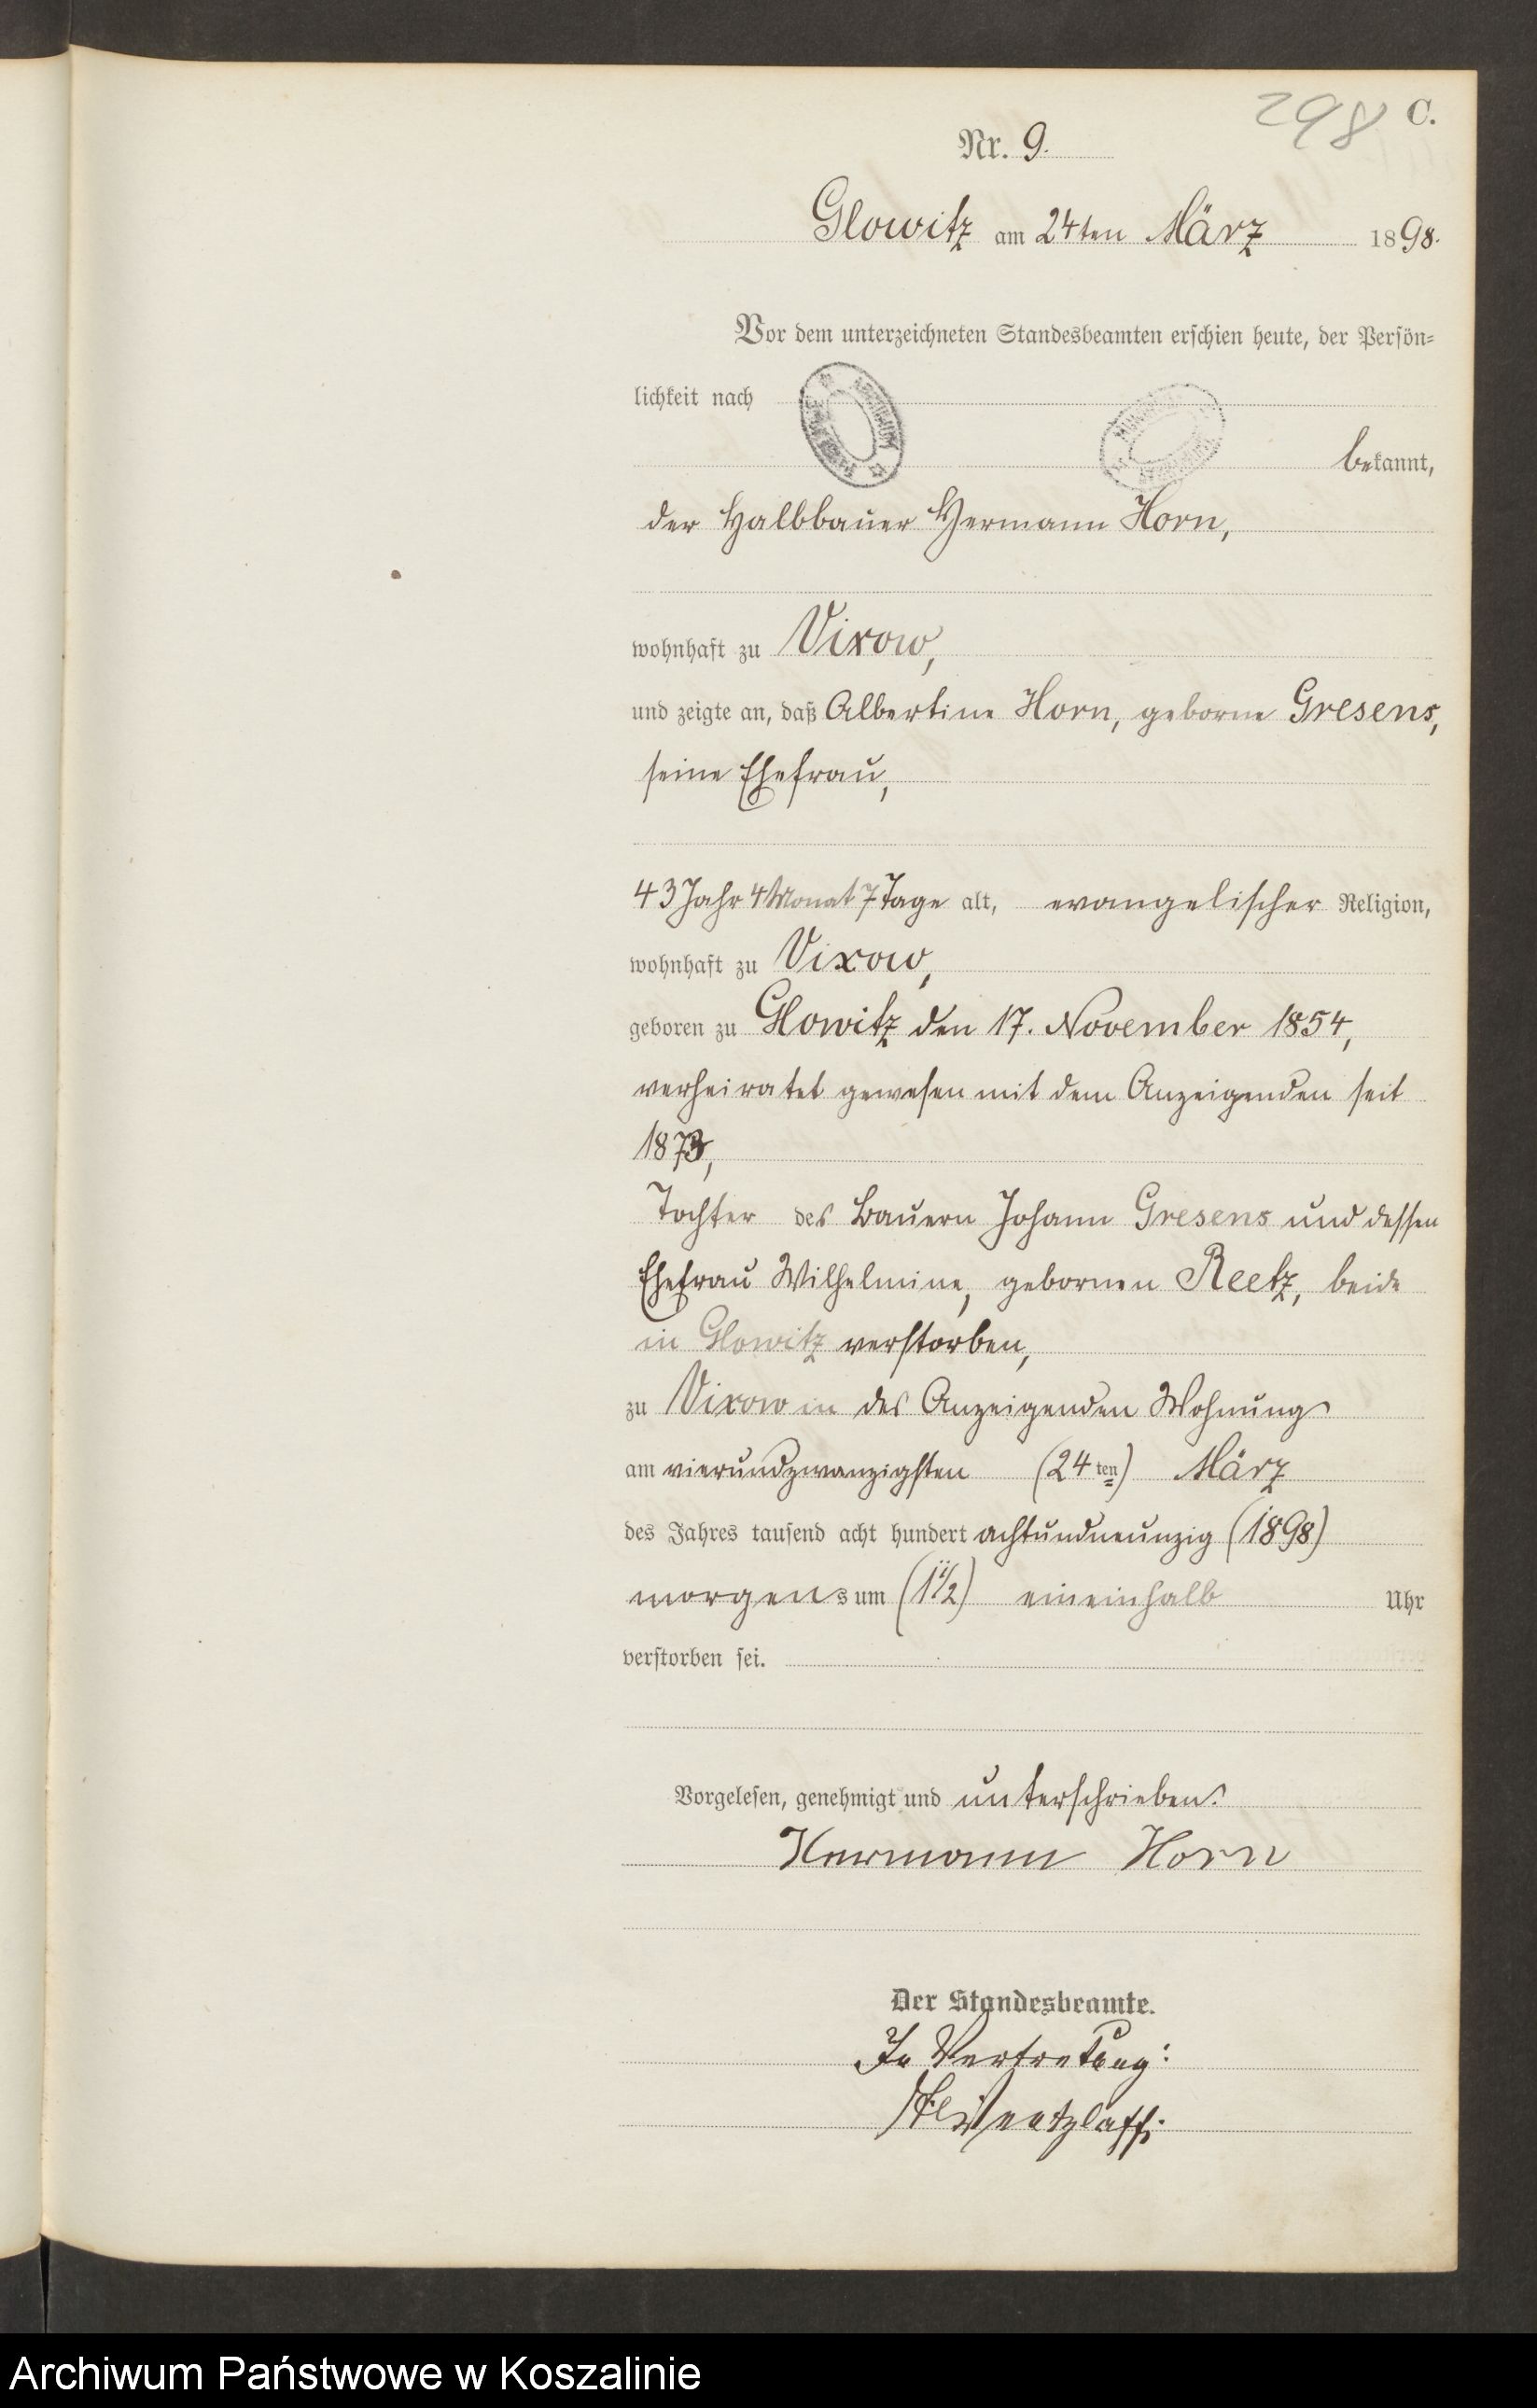 298 C.
Nr. 9.
Glowitz am 24ten März 1898.
Vor dem unterzeichneten Standesbeamten erschien heute, der Persön-
lichkeit nach
bekannt,
der Halbbauer Hermann Horn,
wohnhaft zu Vixow,
und zeigte an, daß Albertine Horn, geborne Gresens,
seine Ehefrau,
43 Jahr 4 Monat 7 Tage alt, evangelischer Religion,
wohnhaft zu Vixow,
geboren zu Glowitz den 17. November 1854,
verheiratet gewesen mit dem Anzeigenden seit
1873,
Tochter des Bauern Johann Gresens und dessen
Ehefrau Wilhelmine, gebornen Reetz, beide
in Glowitz verstorben,
zu Vixow in des Anzeigenden Wohnung
am vierundzwanzigsten (24ten) März
des Jahres tausend acht hundert achtundneunzig (1898)
morgens um (1 1/2) eineinhalb Uhr
verstorben sei.
Vorgelesen, genehmigt und unterschrieben.
Hermann Horn
Der Standesbeamte.
In Vertretung:
Wentzlaff.
Archiwum Państwowe w Koszalinie